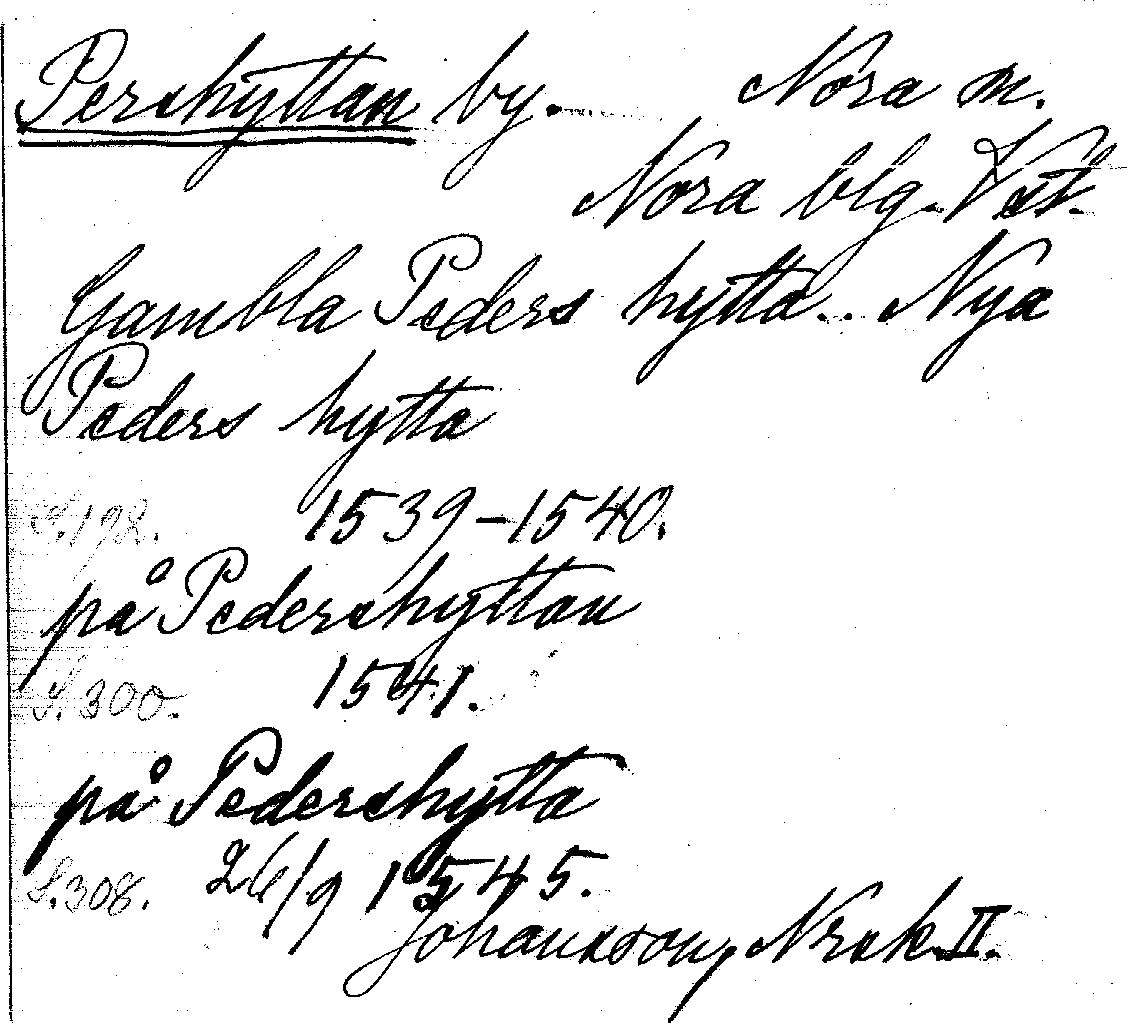 Pershyttan by. Nora m.
Nora blg. Vstl.
Gambla Peders hytta.. Nya
Peders hytta
S.192. 1539-1540.
på Pedershyttan
S.300. 1541.
på Pedershytta
S.308. 26/9 1545.
Johansson, Nrsk II.